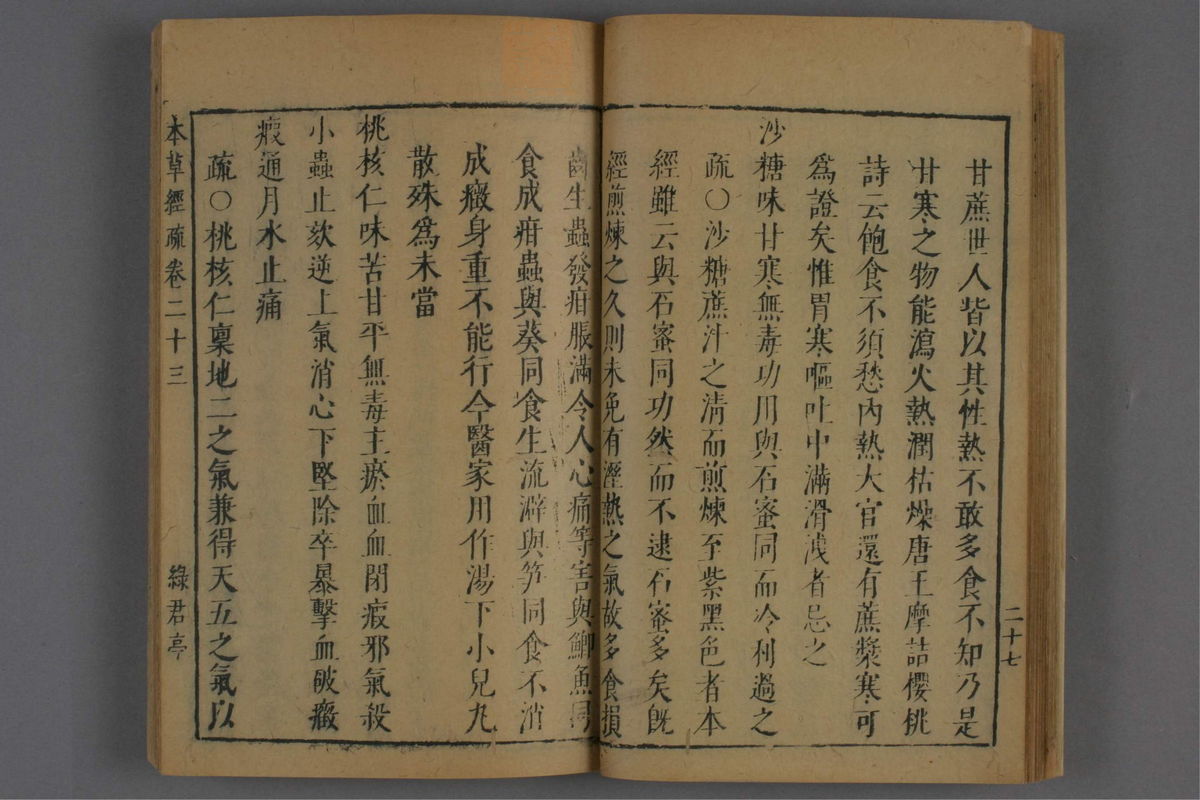 二十七
甘蔗世人皆以其性熱不敢多食不知乃是
甘寒之物能瀉火熱潤枯燥唐王摩詰櫻桃
詩云飽食不須愁內熱大官還有蔗漿寒可
為證矣惟胃寒嘔吐中滿滑洩者忌之
沙糖味甘寒無毒功用與石蜜同而冷利過之
疏○沙糖蔗汁之清而煎煉至紫黑色者本
經雖云與石蜜同功然而不逮石蜜多矣旣
經煎煉之久則未免有溼熱之氣故多食損
齒生蟲發疳脹滿令人心痛等害與鯽魚同
食成疳蟲與葵同食生流澼與笋同食不消
成癥身重不能行今醫家用作湯下小兒丸
散殊爲未當
桃核仁味苦甘平無毒主瘀血血閉瘕邪氣殺
小蟲止欬逆上氣消心下堅除卒暴擊血破癥
瘕通月水止痛
疏○桃核仁稟地二之氣兼得天五之氣以
本草經疏卷二十三
綠君亭